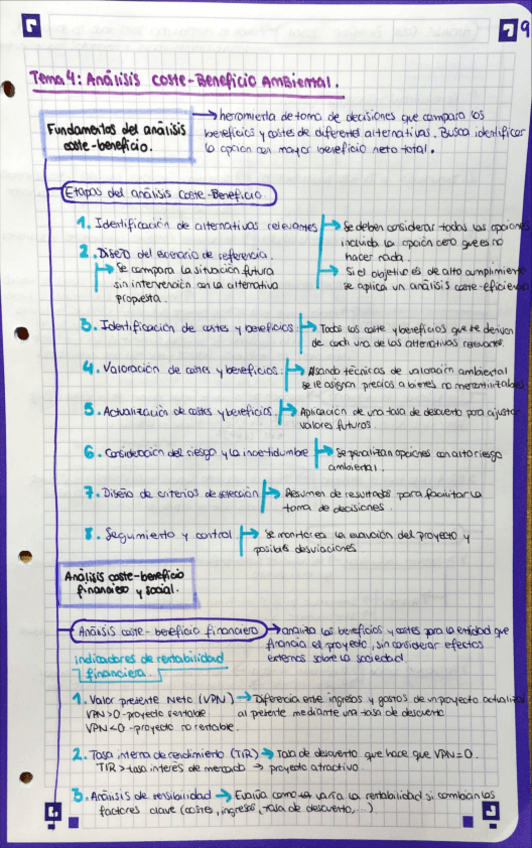 9
Tema 4: Análisis coste-Beneficio Ambiental.
Fundamentos del análisis
coste-beneficio.
→ herramienta de toma de decisiones que compara los
beneficios y costes de diferentes alternativas. Busca identificar
la opción con mayor beneficio neto total.
Etapas del análisis Coste-Beneficio
1. Identificación de alternativas relevantes → Se deben considerar todas las opciones
incluida la opción cero que es no
hacer nada.
→ Si el objetivo es de alto cumplimiento
se aplica un análisis coste-eficiencia
2. Diseño del escenario de referencia.
→ Se compara la situación futura
sin intervención con la alternativa
propuesta.
3. Identificación de costes y beneficios. → Todos los coste y beneficios que se derivan
de cada una de las alternativas relevantes.
4. Valoración de costes y beneficios. → Usando técnicas de valoración ambiental
se le asignan precios a bienes no mercantilizables
5. Actualización de costes y beneficios. → Aplicación de una tasa de descuento para ajustar
valores futuros.
6. Consideración del riesgo y la incertidumbre → Se penalizan opciones con alto riesgo
ambiental.
7. Diseño de criterios de selección → Resumen de resultados para facilitar la
toma de decisiones.
8. Seguimiento y control → Se monitorea la evolución del proyecto y
posibles desviaciones
Análisis coste-beneficio
financiero y social.
Análisis coste-beneficio financiero → analiza los beneficios y costes para la entidad que
financia el proyecto, sin considerar efectos
externos sobre la sociedad.
indicadores de rentabilidad
financiera.
1. Valor presente Neto (VPN) → Diferencia entre ingresos y gastos de un proyecto actualiza
al presente mediante una tasa de descuento
VPN>0 - proyecto rentable
VPN<0 - proyecto no rentable.
2. Tasa interna de rendimiento (TIR) → Tasa de descuento que hace que VPN=0.
TIR > tasa interés de mercado → proyecto atractivo.
3. Análisis de sensibilidad → Evalúa como la varía la rentabilidad si cambian los
factores clave (costes, ingresos, tasa de descuento, ...)